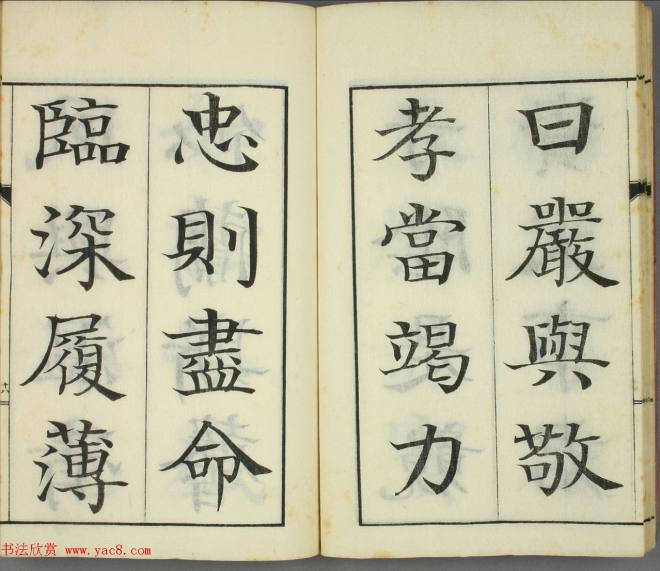 曰嚴與敬
孝當竭力
忠則盡命
臨深履薄
书法欣赏 www.yac8.com